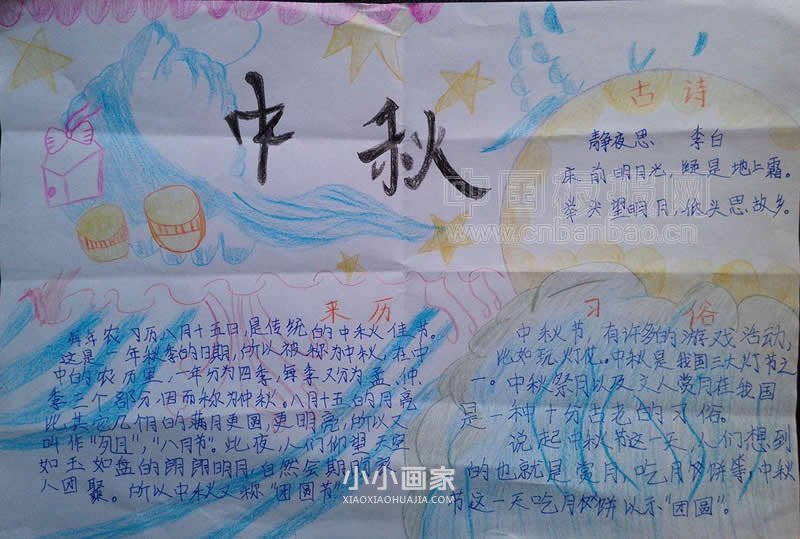 中秋
古诗
静夜思 李白
床前明月光,疑是地上霜。
举头望明月,低头思故乡。
中国板报网
www.cnbanbao.cn
来历
每年农历八月十五日,是传统的中秋佳节。
这是一年秋季的日期,所以被称为中秋,在中
中的农历里,一年分为四季,每季又分为孟、仲、
季三个部分,因而称为仲秋。八月十五的月亮
比其它几个月的满月更圆,更明亮,所以又
叫作“月夕”,“八月节”。此夜,人们仰望天空
如玉如盘的朗朗明月,自然会期盼家
人团聚。所以中秋又称“团圆节”
习俗
中秋节,有许多的游戏活动,
比如玩灯笼。中秋是我国三大灯节之
一。中秋祭月以及文人赏月在我国
是一种十分古老的习俗。
说起中秋节这一天,人们想到
的也就是赏月,吃月饼等,中秋
节这一天吃月饼以示“团圆”。
小小画家
XIAOXIAOHUAJIA.COM